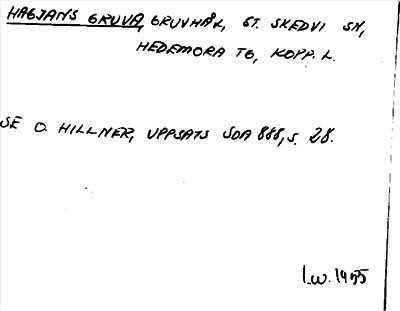 HAGJANS GRUVA, GRUVHÅL, ST. SKEDVI SN,
HEDEMORA TG, KOPP. L.
SE O. HILLNER, UPPSATS SOA 888, S. 28.
I.W. 1955